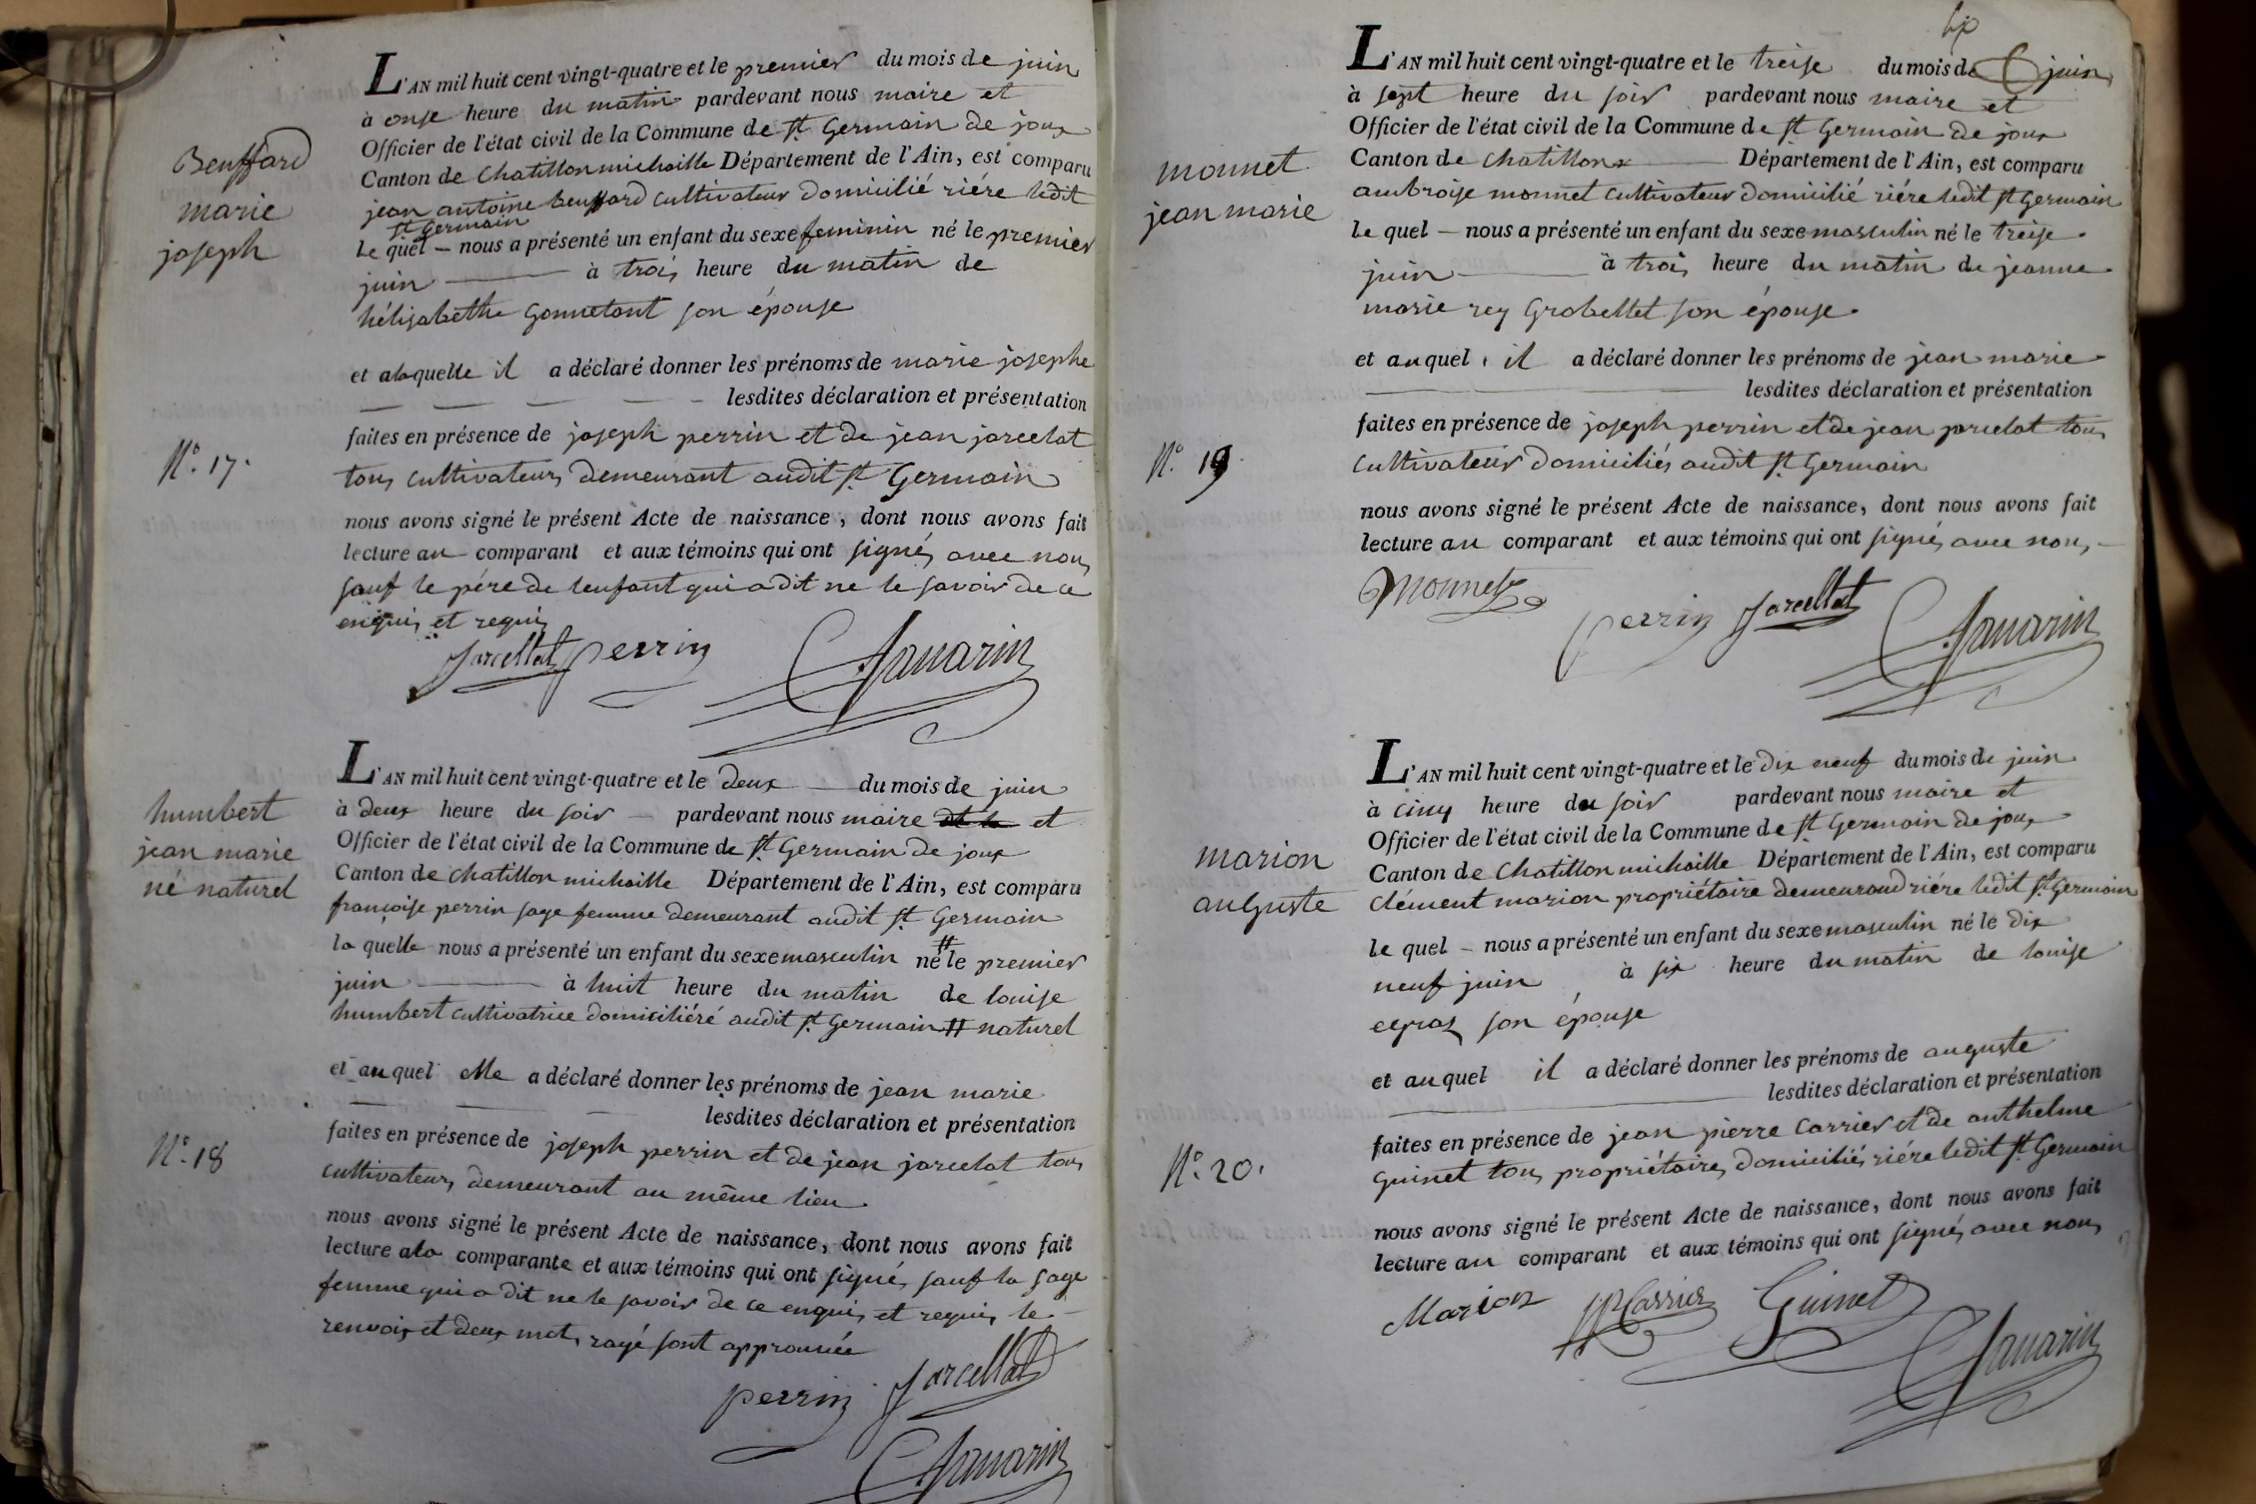 Beuffard
marie
joseph
N.° 17.
L'AN mil huit cent vingt-quatre et le premier du mois de juin
à onse heure du matin pardevant nous maire et
Officier de l'état civil de la Commune de St Germain de joux
Canton de Chatillon michaille Département de l'Ain, est comparu
jean antoine beuffard cultivateur domicilié riére ledit
St Germain
Le quel — nous a présenté un enfant du sexe feminin né le premier
juin — à trois heure du matin de
hélisabethe Gonnetant son épouse
et alaquelle il a déclaré donner les prénoms de marie josephe
— — — — — lesdites déclaration et présentation
faites en présence de joseph perrin et de jean jarcelat
tous cultivateurs demeurant audit St Germain
nous avons signé le présent Acte de naissance, dont nous avons fait
lecture au comparant et aux témoins qui ont signés avec nous
sauf le pére de lenfant qui a dit ne le savoir de ce
enquis et requis
Jarcellat perrin Savarin
humbert
jean marie
né naturel
N.° 18
L'AN mil huit cent vingt-quatre et le deux — du mois de juin
à deux heure du soir — pardevant nous maire et
Officier de l'état civil de la Commune de St Germain de joux
Canton de Chatillon michaille Département de l'Ain, est comparu
françoise perrin sage femme demeurant audit St Germain
la quelle nous a présenté un enfant du sexe masculin né # le premier
juin — à huit heure du matin de louise
humbert cultivatrice domiciliéré audit St Germain # naturel
et au quel elle a déclaré donner les prénoms de jean marie
— — — lesdites déclaration et présentation
faites en présence de joseph perrin et de jean jarcelat tous
cultivateurs demeurant au même lieu
nous avons signé le présent Acte de naissance, dont nous avons fait
lecture ala comparante et aux témoins qui ont signés sauf la sage
femme qui a dit ne le savoir de ce enquis et requis le —
renvois et deux mots rayé sont approuvée
perrin Jarcellat
Savarin
monnet
jean marie
N.° 19
L'AN mil huit cent vingt-quatre et le treise du mois de juin
à sept heure du soir pardevant nous maire et
Officier de l'état civil de la Commune de St Germain de joux
Canton de Chatillon — Département de l'Ain, est comparu
ambroise monnet cultivateur domicilié riére ledit St Germain
le quel — nous a présenté un enfant du sexe masculin né le treise
juin — à trois heure du matin de jeanne
marie rey Grobellet son épouse
et au quel il a déclaré donner les prénoms de jean marie
— lesdites déclaration et présentation
faites en présence de joseph perrin et de jean jarcelat tous
cultivateur domiciliés audit St Germain
nous avons signé le présent Acte de naissance, dont nous avons fait
lecture au comparant et aux témoins qui ont signés avec nous —
Monnet perrin Jarcellat Savarin
marion
auguste
N.° 20.
L'AN mil huit cent vingt-quatre et le dix neuf du mois de juin
à cinq heure du soir pardevant nous maire et
Officier de l'état civil de la Commune de St Germain de joux
Canton de Chatillon michaille Département de l'Ain, est comparu
clément marion propriétaire demeurand riére ledit St Germain
le quel — nous a présenté un enfant du sexe masculin né le dix
neuf juin à six heure du matin de louise
son épouse
et au quel il a déclaré donner les prénoms de auguste
— lesdites déclaration et présentation
faites en présence de jean pierre Carrier et de anthelme
Guinet tous propriétaires domiciliés riére ledit St Germain
nous avons signé le présent Acte de naissance, dont nous avons fait
lecture au comparant et aux témoins qui ont signés avec nous
Marion JP Carrier Guinet
Savarin